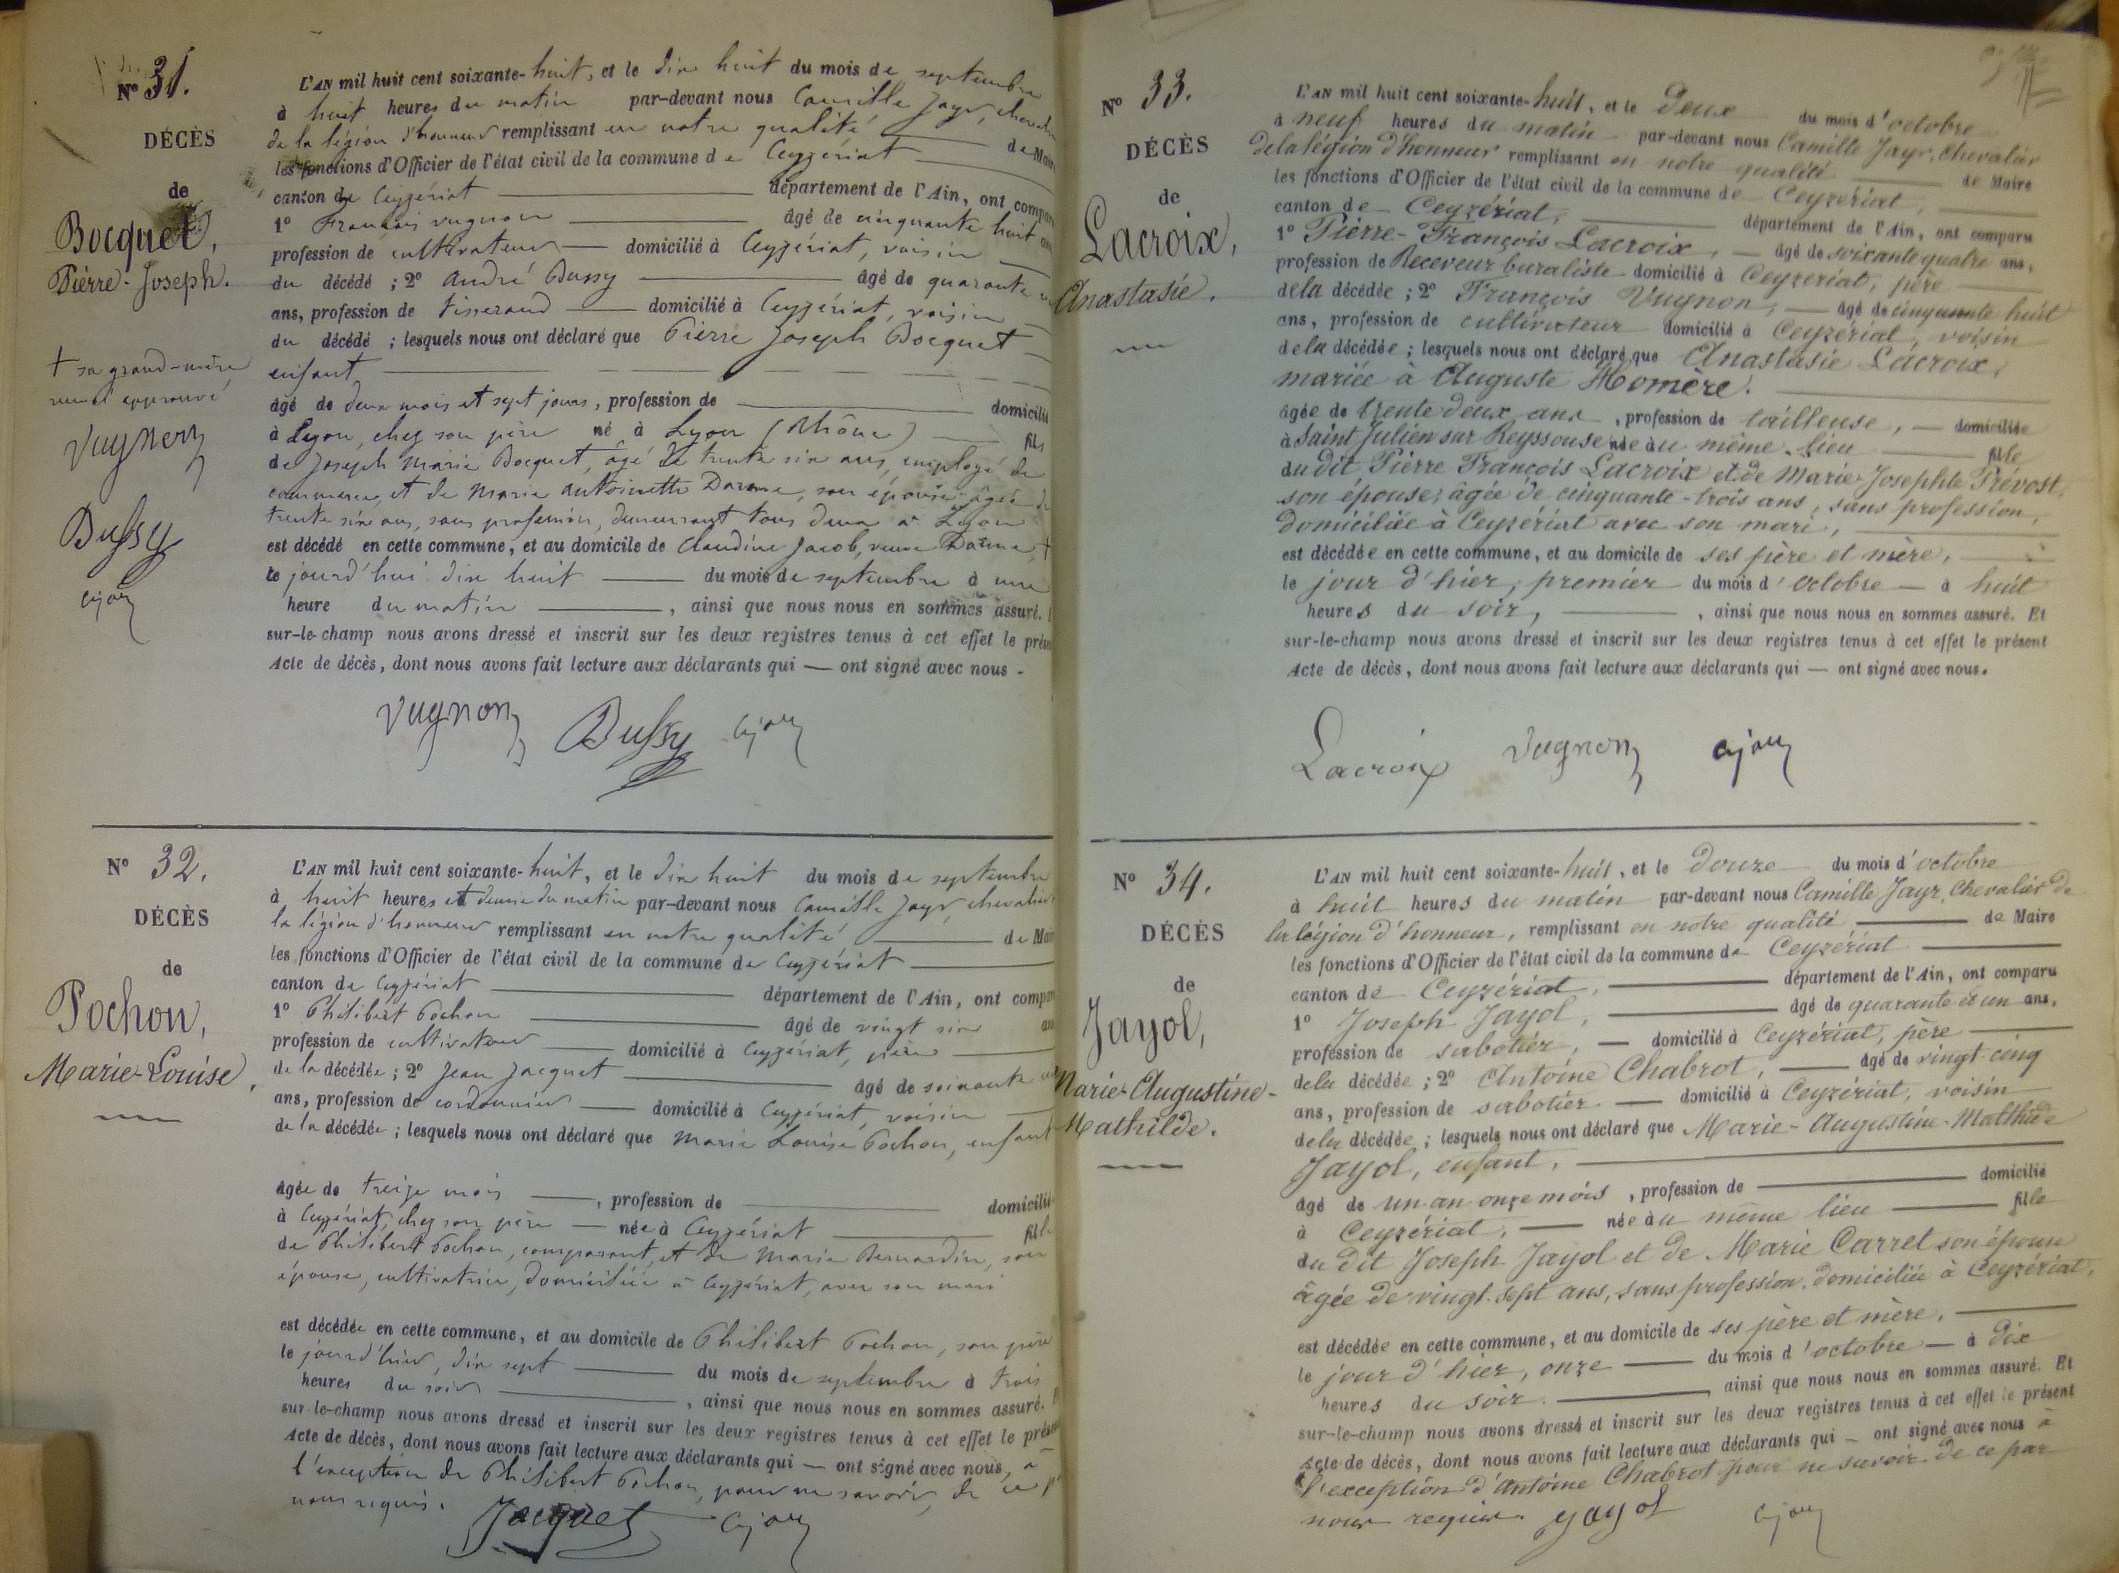 N° 31.
DÉCÈS
de
Bocquet,
Pierre-Joseph.
+ sa grand-mère
renvoi approuvé
Vugnon
Dussy
L'AN mil huit cent soixante-huit, et le dix huit du mois de septembre
à huit heures du matin par-devant nous Camille Jayr, cheva
de la légion d'honneur remplissant en notre qualité de Mai
les fonctions d'Officier de l'état civil de la commune de Ceyzériat
canton de Ceyzériat département de l'Ain, ont compa
1° François Vugnon âgé de cinquante huit an
profession de cultivateur domicilié à Ceyzériat, voisin
du décédé ; 2° André Dussy âgé de quarante
ans, profession de tisserand domicilié à Ceyzériat, voisin
du décédé ; lesquels nous ont déclaré que Pierre Joseph Bocquet
enfant
âgé de deux mois et sept jours, profession de domicilié
à Lyon, chez son père né à Lyon (Rhône) fils
de Joseph Marie Bocquet, âgé de trente six ans, employé de
commerce, et de Marie Antoinette Darme, son épouse âgée de
trente six ans, sans profession, demeurant tous deux à Lyon
est décédé en cette commune, et au domicile de Claudine Jacob, veuve Darme +
le jourd'hui dix huit du mois de septembre à une
heure du matin , ainsi que nous nous en sommes assuré.
sur-le-champ nous avons dressé et inscrit sur les deux registres tenus à cet effet le prése
Acte de décès, dont nous avons fait lecture aux déclarants qui — ont signé avec nous.
Vugnon Dussy
N° 32.
DÉCÈS
de
Pochon,
Marie-Louise,
L'AN mil huit cent soixante-huit, et le dix huit du mois de septembre
à huit heures et demie du matin par-devant nous Camille Jayr, chevalier
la légion d'honneur remplissant en notre qualité de Mair
les fonctions d'Officier de l'état civil de la commune de Ceyzériat
canton de Ceyzériat département de l'Ain, ont compar
1° Philibert Pochon âgé de vingt six an
profession de cultivateur domicilié à Ceyzériat, père
de la décédée ; 2° Jean Jacquet âgé de soixante
ans, profession de cordonnier domicilié à Ceyzériat, voisin
de la décédée ; lesquels nous ont déclaré que Marie Louise Pochon, enfant
âgée de treize mois , profession de domicilié
à Ceyzériat, chez son père — née à Ceyzériat fille
de Philibert Pochon, comparant, et de Marie Bernardin, son
épouse, cultivatrice, domiciliée à Ceyzériat, avec son mari
est décédée en cette commune, et au domicile de Philibert Pochon, son père
le jour d'hier, dix sept du mois de septembre à trois
heures du soir , ainsi que nous nous en sommes assuré.
sur-le-champ nous avons dressé et inscrit sur les deux registres tenus à cet effet le prése
Acte de décès, dont nous avons fait lecture aux déclarants qui — ont signé avec nous, à
l'exception de Philibert Pochon, pour ne savoir, de ce p
nous requis.
Jacquet
N° 33.
DÉCÈS
de
Lacroix,
Anastasie.
L'AN mil huit cent soixante-huit, et le Deux du mois d'octobre
à neuf heures du matin par-devant nous Camille Jayr, Chevalier
de la légion d'honneur remplissant en notre qualité de Maire
les fonctions d'Officier de l'état civil de la commune de Ceyzériat,
canton de Ceyzériat, département de l'Ain, ont comparu
1° Pierre-François Lacroix, âgé de soixante quatre ans,
profession de Receveur buraliste domicilié à Ceyzériat, père
de la décédée ; 2° François Vugnon, âgé de cinquante huit
ans, profession de cultivateur domicilié à Ceyzériat, voisin
de la décédée ; lesquels nous ont déclaré que Anastasie Lacroix,
mariée à Auguste Homère.
âgée de trente deux ans, profession de tailleuse, domiciliée
à Saint Julien sur Reyssouse née au même lieu fille
du dit Pierre François Lacroix et de Marie Josephte Prévost,
son épouse, âgée de cinquante-trois ans, sans profession,
domiciliée à Ceyzériat avec son mari,
est décédée en cette commune, et au domicile de ses père et mère,
le jour d'hier, premier du mois d'octobre à huit
heures du soir, , ainsi que nous nous en sommes assuré. Et
sur-le-champ nous avons dressé et inscrit sur les deux registres tenus à cet effet le présent
Acte de décès, dont nous avons fait lecture aux déclarants qui — ont signé avec nous.
Lacroix Vugnon
N° 34.
DÉCÈS
de
Jayol,
Marie-Augustine-
Mathilde.
L'AN mil huit cent soixante-huit, et le douze du mois d'octobre
à huit heures du matin par-devant nous Camille Jayr, Chevalier de
la légion d'honneur, remplissant en notre qualité de Maire
les fonctions d'Officier de l'état civil de la commune de Ceyzériat
canton de Ceyzériat, département de l'Ain, ont comparu
1° Joseph Jayol, âgé de quarante et un ans,
profession de sabotier, domicilié à Ceyzériat, père
de la décédée ; 2° Antoine Chabrot, âgé de vingt-cinq
ans, profession de sabotier domicilié à Ceyzériat, voisin
de la décédée ; lesquels nous ont déclaré que Marie-Augustine-Mathilde
Jayol, enfant,
âgé de un an onze mois, profession de domicilié
à Ceyzériat, née au même lieu fille
du dit Joseph Jayol et de Marie Carret son épouse
âgée de vingt-sept ans, sans profession, domiciliée à Ceyzériat,
est décédée en cette commune, et au domicile de ses père et mère,
le jour d'hier, onze du mois d'octobre à dix
heures du soir. ainsi que nous nous en sommes assuré. Et
sur-le-champ nous avons dressé et inscrit sur les deux registres tenus à cet effet le présent
Acte de décès, dont nous avons fait lecture aux déclarants qui — ont signé avec nous à
l'exception d'Antoine Chabrot pour ne savoir de ce par
nous requis. Jayol